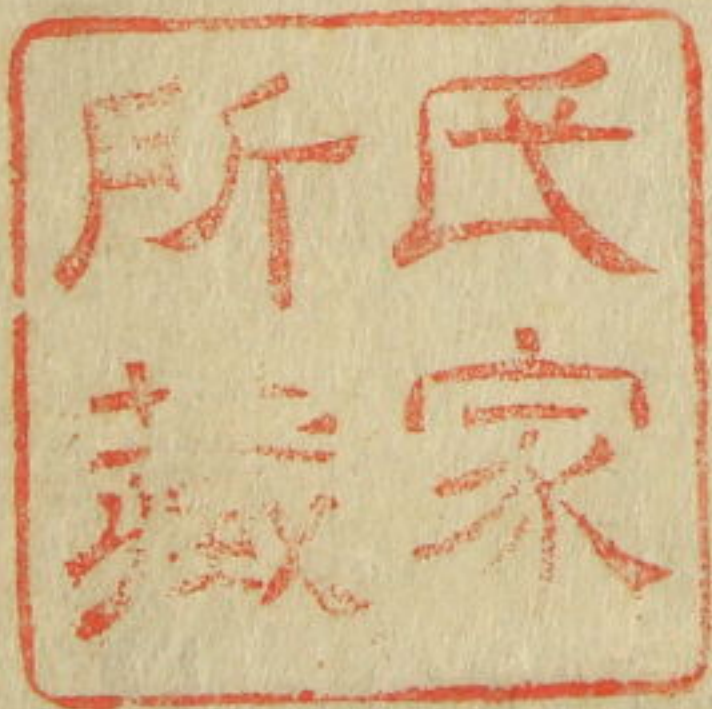 氏家
所藏